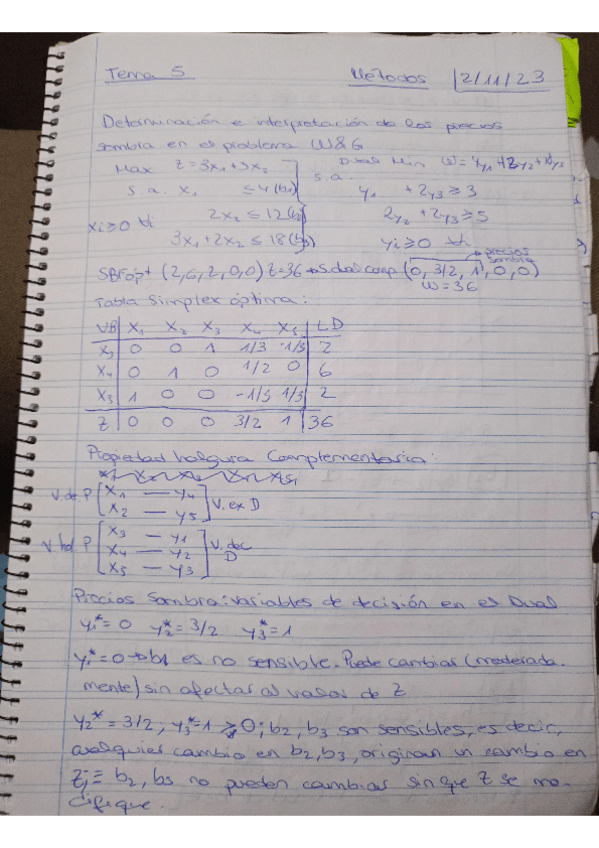 Tema 5 Métodos 12/11/23
Determinación e interpretación de los precios
sombra en el problema W&G
Max z=3x₁+5x₂ Dual Min W=4y₁+12y₂+18y₃
s.a. x₁ ≤4(b₁) s.a. y₁ +2y₃≥3
xi≥0 ∀i 2x₂≤12(b₂) 2y₂+2y₃≥5
3x₁+2x₂≤18(b₃) yi≥0 ∀i
precios sombra
SBFopt (2,6,2,0,0) z=36→S.dual comp (0, 3/2, 1, 0, 0)
W=36
Tabla Simplex óptima:
VB X₁ X₂ X₃ X₄ X₅ LD
X₃ 0 0 1 1/3 -1/3 2
X₄ 0 1 0 1/2 0 6
X₃ 1 0 0 -1/3 1/3 2
Z 0 0 0 3/2 1 36
Propiedad holgura Complementaria:
V.de.P X₁ — y₄ V.ex D
X₂ — y₅
X₃ — y₁
V.hol.P X₄ — y₂ V.dec D
X₅ — y₃
Precios Sombra: variables de decisión en el Dual
y₁*=0 y₂*=3/2 y₃*=1
y₁*=0→b₁ es no sensible. Puede cambiar (moderada-
mente) sin afectar al valor de Z
y₂*=3/2; y₃*=1 ≥0; b₂, b₃ son sensibles, es decir,
cualquier cambio en b₂,b₃, originan un cambio en
Z; = b₂, b₃ no pueden cambiar sin que Z se mo-
difique.